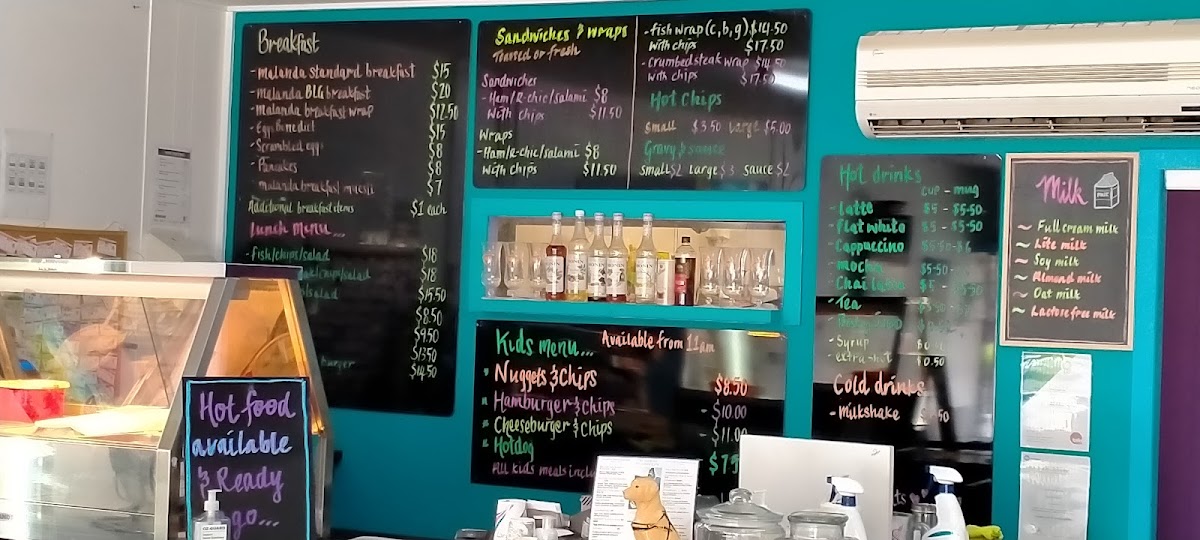 Breakfast
- Malanda standard breakfast $15
- Malanda BLG breakfast $20
- Malanda breakfast wrap $12.50
- Egg Benedict $15
- Scrambled egg $8
- Pancakes $8
- malanda breakfast muesli $7
Additional breakfast items $1 each
Lunch Menu...
- Fish/chips/salad $18
/chips/salad $18
$15.50
$8.50
$9.50
$13.50
burger $14.50
Sandwiches & wraps
Toasted or fresh
Sandwiches
- Ham/R-chic/salami $8
With chips $11.50
Wraps
- Ham/R-chic/salami $8
With chips $11.50
- fish wrap (c, b, g) $14.50
With chips $17.50
- Crumbed steak wrap $14.50
With chips $17.50
Hot Chips
Small $3.50 Large $5.00
Gravy & sauce
Small $2 Large $3 sauce $2
Kids menu... Available from 11am
Nuggets & Chips $8.50
Hamburger & Chips - $10.00
Cheeseburger & Chips - $11.00
Hotdog
All kids meals
Hot drinks
cup - mug
- Latte $5 - $5-50
- Flat white $5 - $5-50
- Cappuccino
- mocha $5-50 -
- Chai latte
- Tea
- Syrup
- extra-hot $0.50
Cold drinks
- Milkshake
Milk
~ Full cream milk
~ Lite milk
~ Soy milk
~ Almond milk
~ Oat milk
~ Lactose free milk
Hot food
available
& Ready
go...